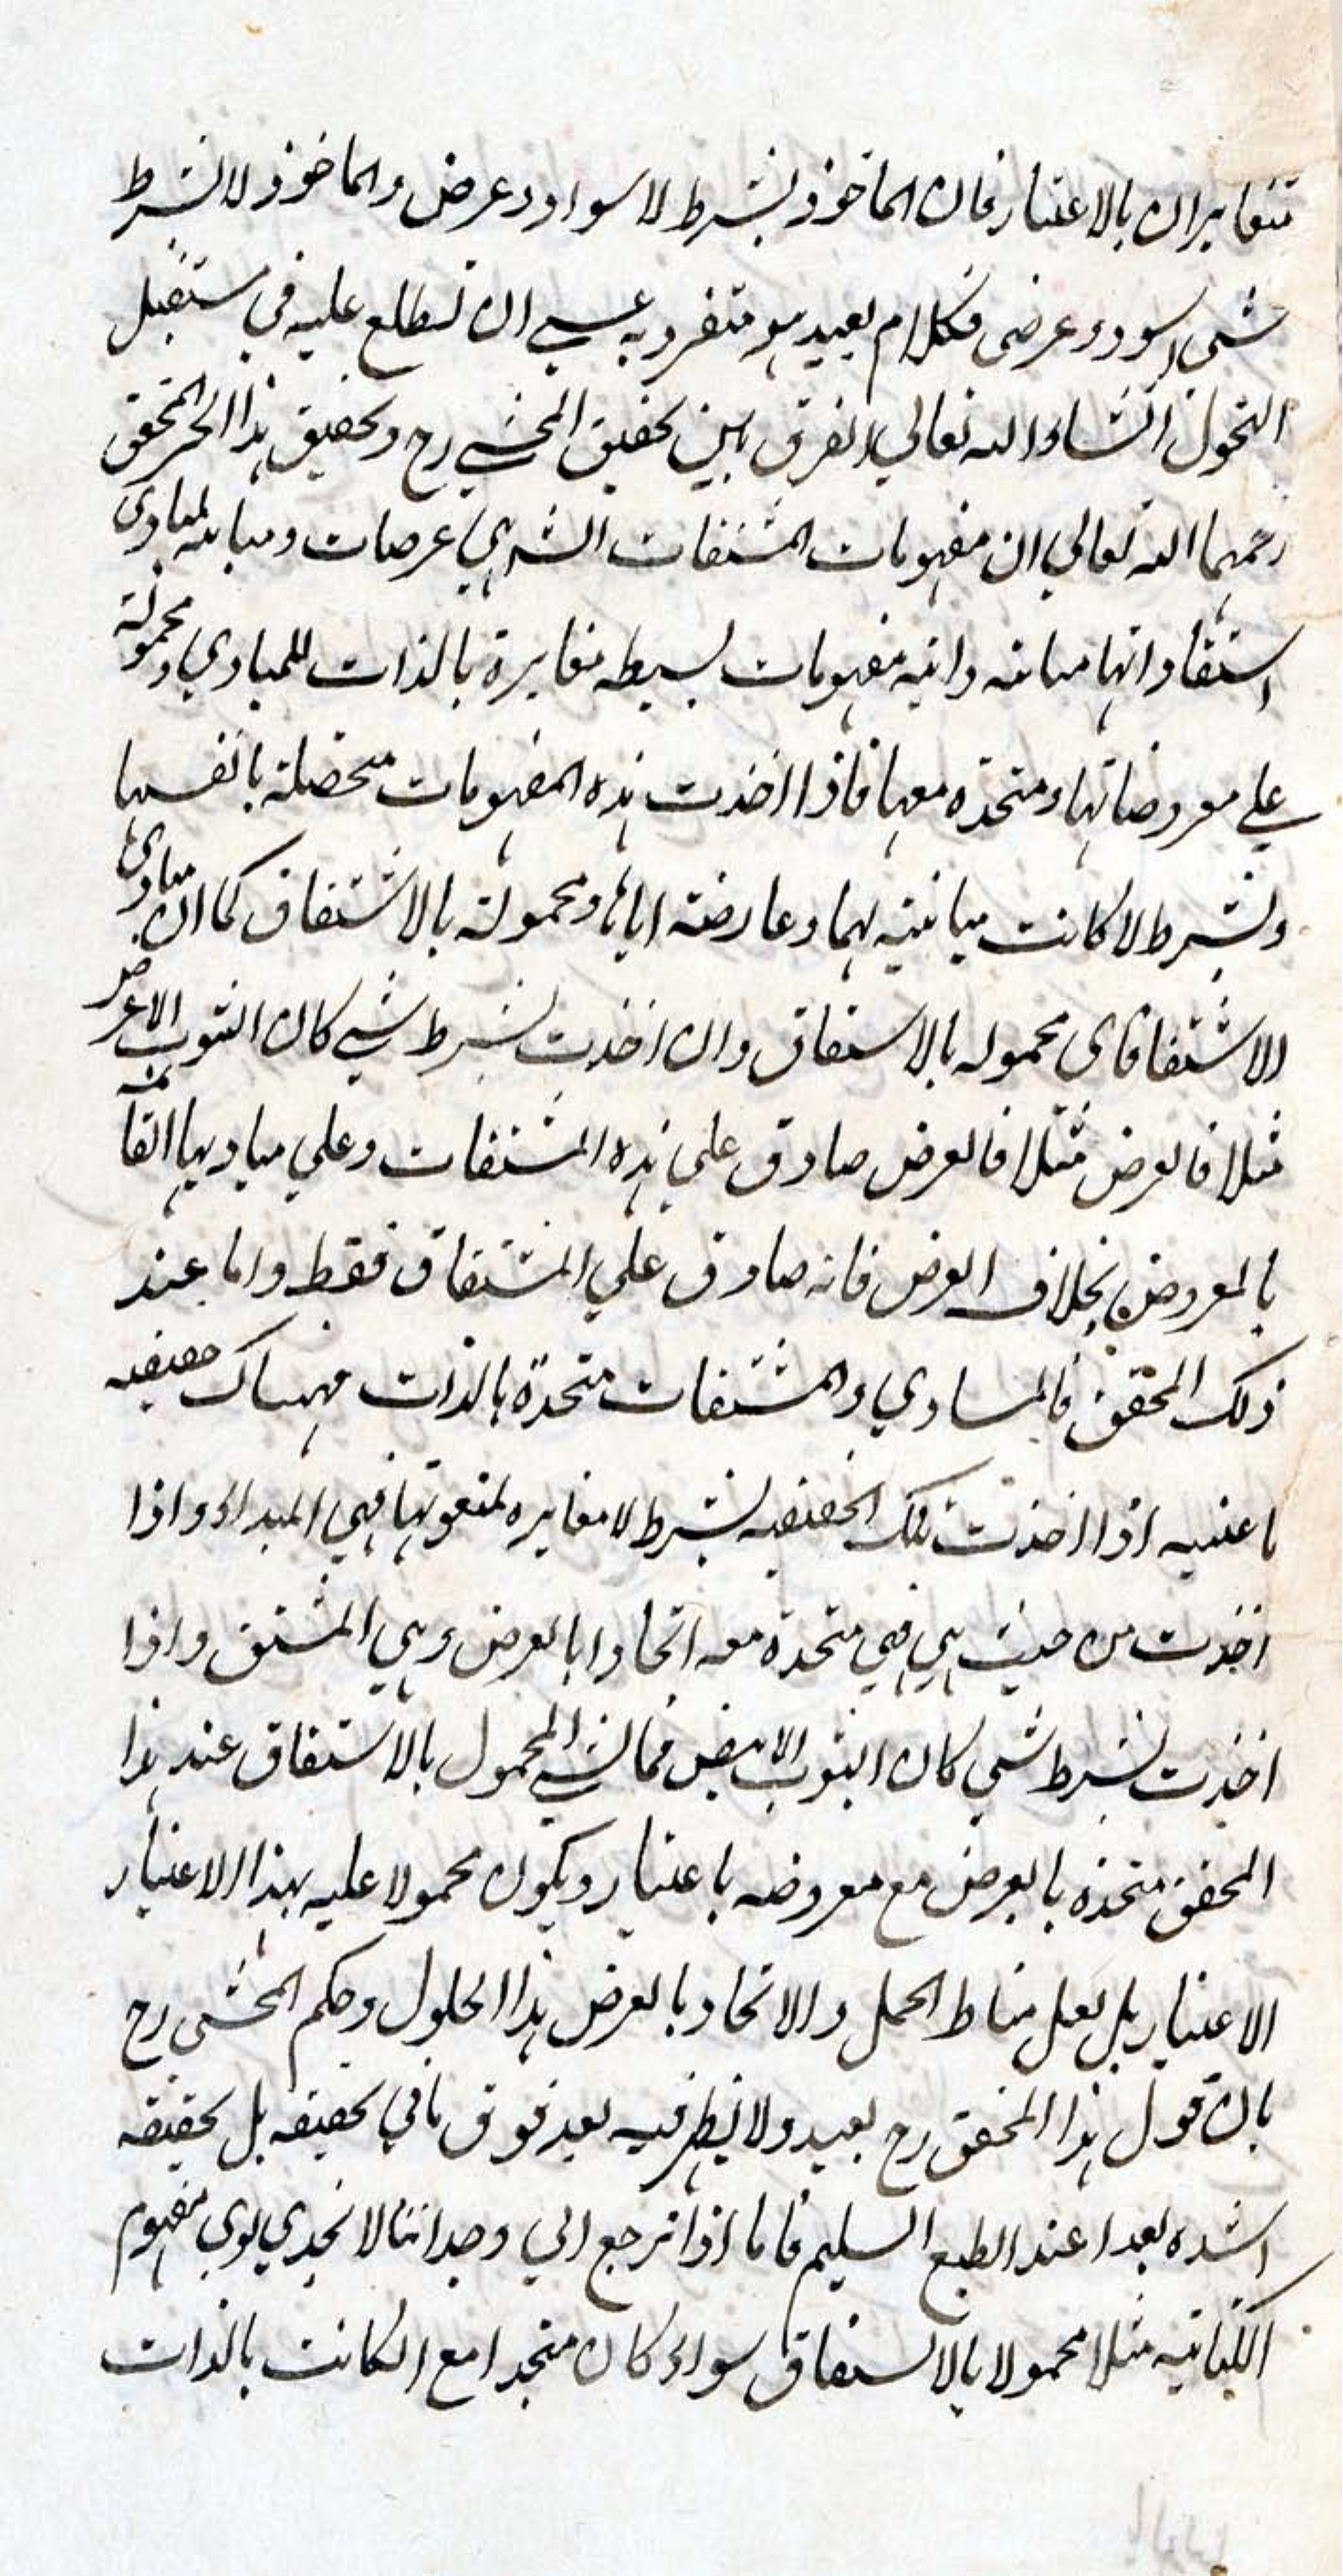 متغايران بالاعتبار فان الماخوذ بشرط لا سواد وعرض والماخوذ لا بشرط
شی اسود وعرضی فكلام بعيد هو متفرد به عسے ان تطلع عليه في مستقبل
القول انشاء الله تعالي الفرق بين تحقيق المحشے رح وتحقيق هذا الحبر المحقق
رحمهما الله تعالي ان مفهومات المشتقات التي هي عرضيات ومباينة لمبادی
اشتقاقاتها مباينة ذاتية مفهومات بسيطه مغايرة بالذات للمبادي ومحمولة
علے معروضاتها ومتحدة معها فاذا اخذت هذه المفهومات متحصلة بانفسها
وبشرط لا كانت مباينة لها وعارضة اياها ومحمولة بالاشتقاق كما ان مبادی
الاشتقاق محموله بالاشتقاق وان اخذت بشرط شے كان الثوب
مثلا فالعرض مثلا فالعرض صادق علي هذه المشتقات وعلي مباديها القائمة
بالمعروض بخلاف العرض فانه صادق علي المشتقات فقط واما عند
ذلك المحقق فالمبادي والمشتقات متحدة بالذات فهناك حقيقه
ناعتيه اذا اخذت تلك الحقيقه بشرط لا مغايره لمنعوتها فهي المبداء واذا
اخذت من حيث هي هي متحدة معه اتحادا بالعرض وهي المشتق واذا
اخذت بشرط شي كان الثوب الابيض فالشے المحمول بالاشتقاق عند هذا
المحقق متحدة بالعرض مع معروضه باعتبار ويكون محمولا عليه بهذا الاعتبار
الاعتبار بل لعل مناط الحمل والاتحاد بالعرض هذا الحلول وحكم المحشی رح
بان قول هذا المحقق رح بعيد ولا يظهر فيه بعد فوق ما في تحقيقه بل تحقيقه
اشد بعدا عند الطبع السليم فانا اذا نرجع الي وجداننا لا نجد مفهوم
الكتابة مثلا محمولا بالاشتقاق سواء كان متحدا مع الكاتب بالذات